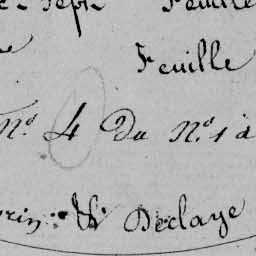 Sept Feuille
Feuille
Nº 4 Du Nº 1 à
Declaye